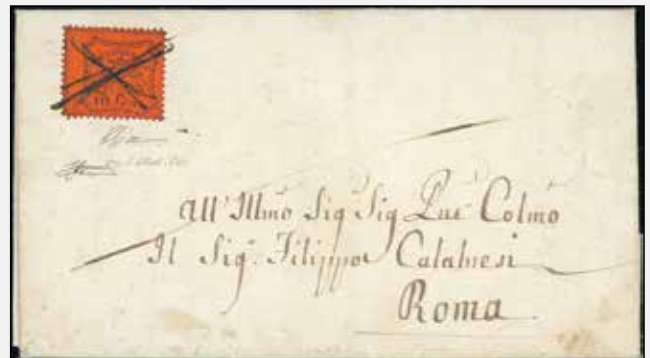 10 C.
All' Illmo Sig Sig Pne Colmo
Il Sig. Filippo Calabresi
Roma